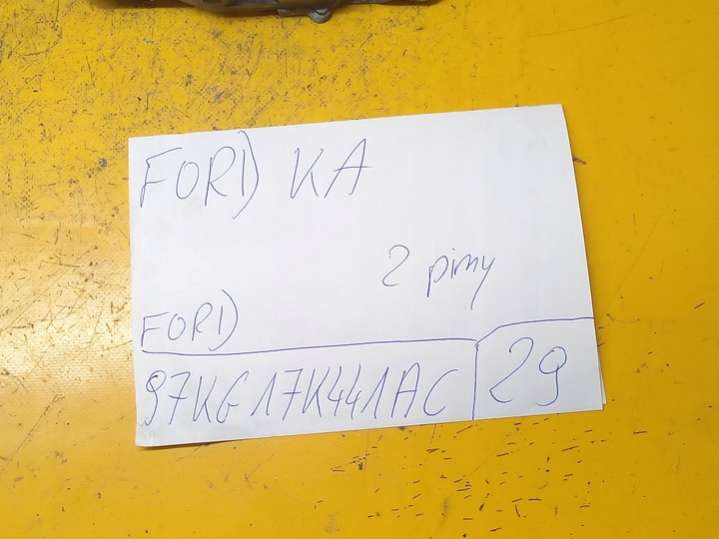 FORD KA
2 piny
FORD
97KG17K441AC
29